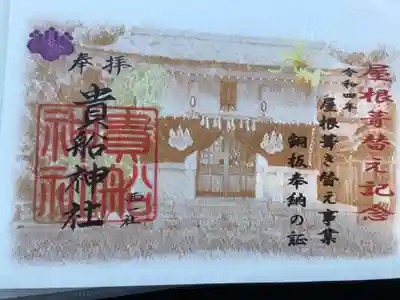 屋根葺替え記念
令和四年
屋根葺き替え事業
銅板奉納の証
奉拝
貴船神社
貴船
神社